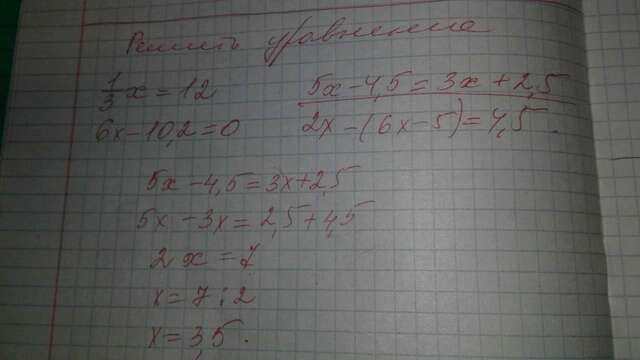 Решить уравнения
1/3 x = 12
5x - 4,5 = 3x + 2,5
6x - 10,2 = 0
2x - (6x - 5) = 4,5.
5x - 4,5 = 3x + 2,5
5x - 3x = 2,5 + 4,5
2x = 7
x = 7 : 2
x = 3,5.